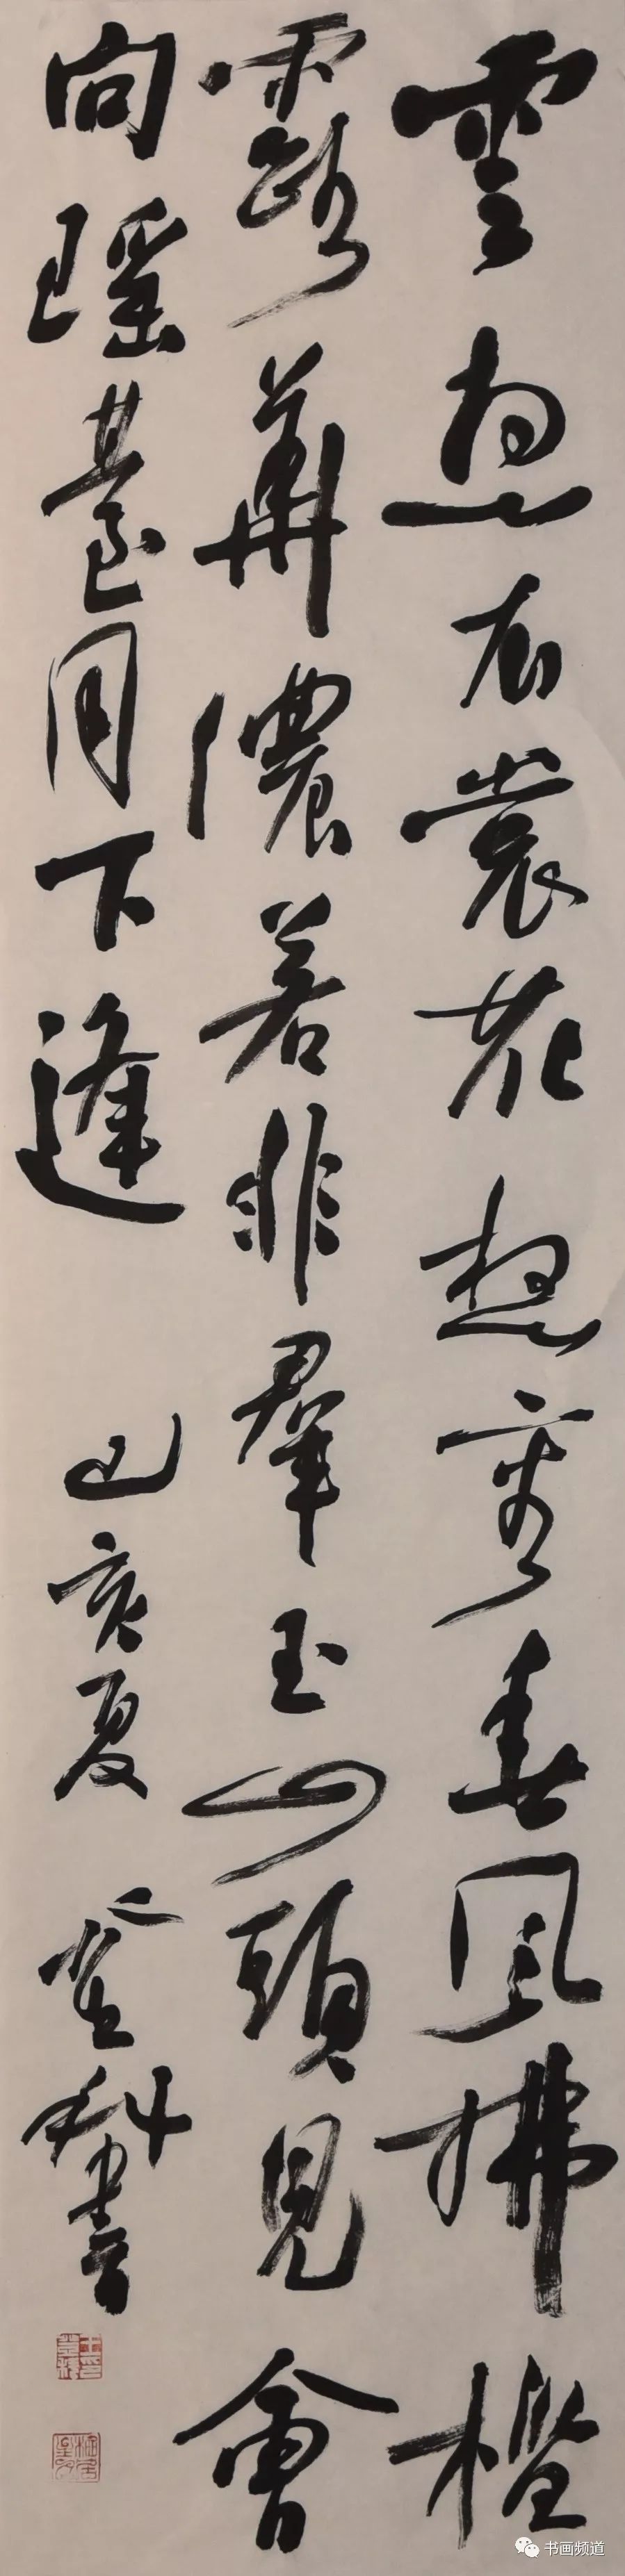 雲想衣裳花想容春風拂檻
露華儂若非羣玉山頭見會
向瑤臺月下逢 己亥夏 登科書
书画频道